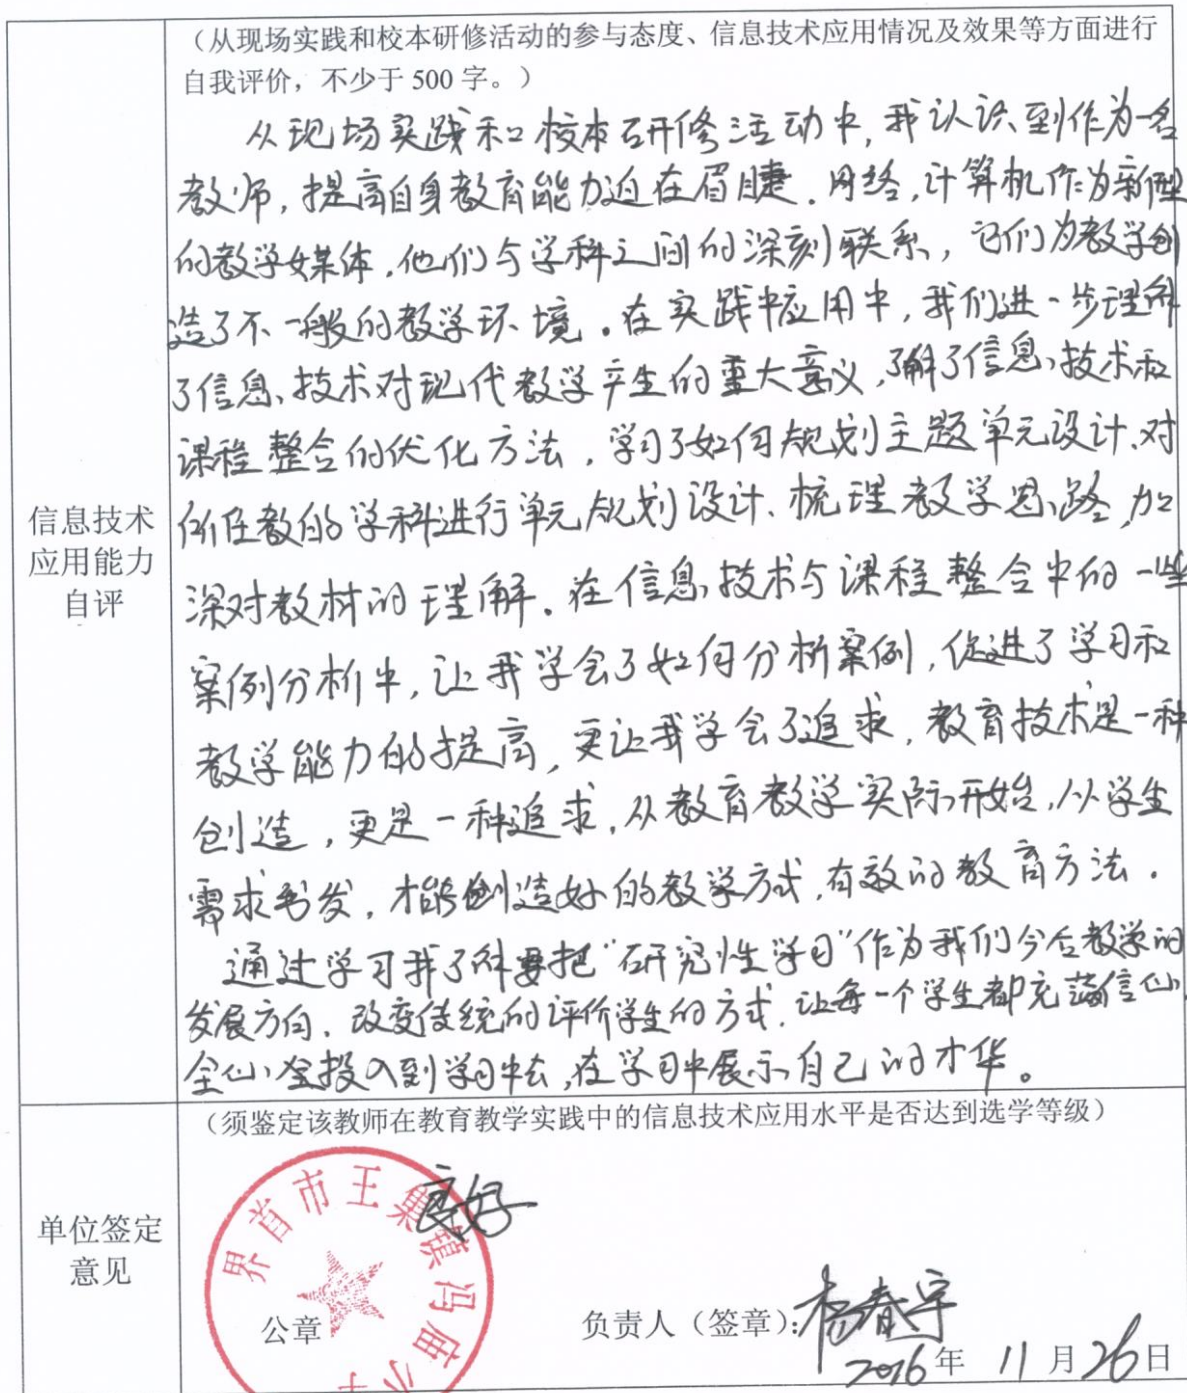 （从现场实践和校本研修活动的参与态度、信息技术应用情况及效果等方面进行
自我评价，不少于 500 字。）
从现场实践和校本研修活动中，我认识到作为一名
教师，提高自身教育能力迫在眉睫．网络，计算机作为新型
的教学媒体．他们与学科之间的深刻联系，它们为教学创
造了不一般的教学环境．在实践中应用中，我们进一步理解
了信息技术对现代教学产生的重大意义，了解了信息技术和
课程整合的优化方法．学习了如何规划主题单元设计、对
所任教的学科进行单元规划设计、梳理教学思路，加
深对教材的理解．在信息技术与课程整合中的一些
案例分析中，让我学会了如何分析案例，促进了学习和
教学能力的提高，更让我学会了追求，教育技术是一种
创造，更是一种追求．从教育教学实际开始，从学生
需求出发，才能创造好的教学方式，有效的教育方法．
通过学习我了解要把“研究性学习”作为我们今后教学的
发展方向．改变传统的评价学生的方式．让每一个学生都充满信心
全心全投入到学习中去，在学习中展示自己的才华。
信息技术
应用能力
自评
（须鉴定该教师在教育教学实践中的信息技术应用水平是否达到选学等级）
良好
界首市王集镇冯庙小学
单位签定
意见
公章
负责人（签章）：杨春宇
2016年 11 月 26 日